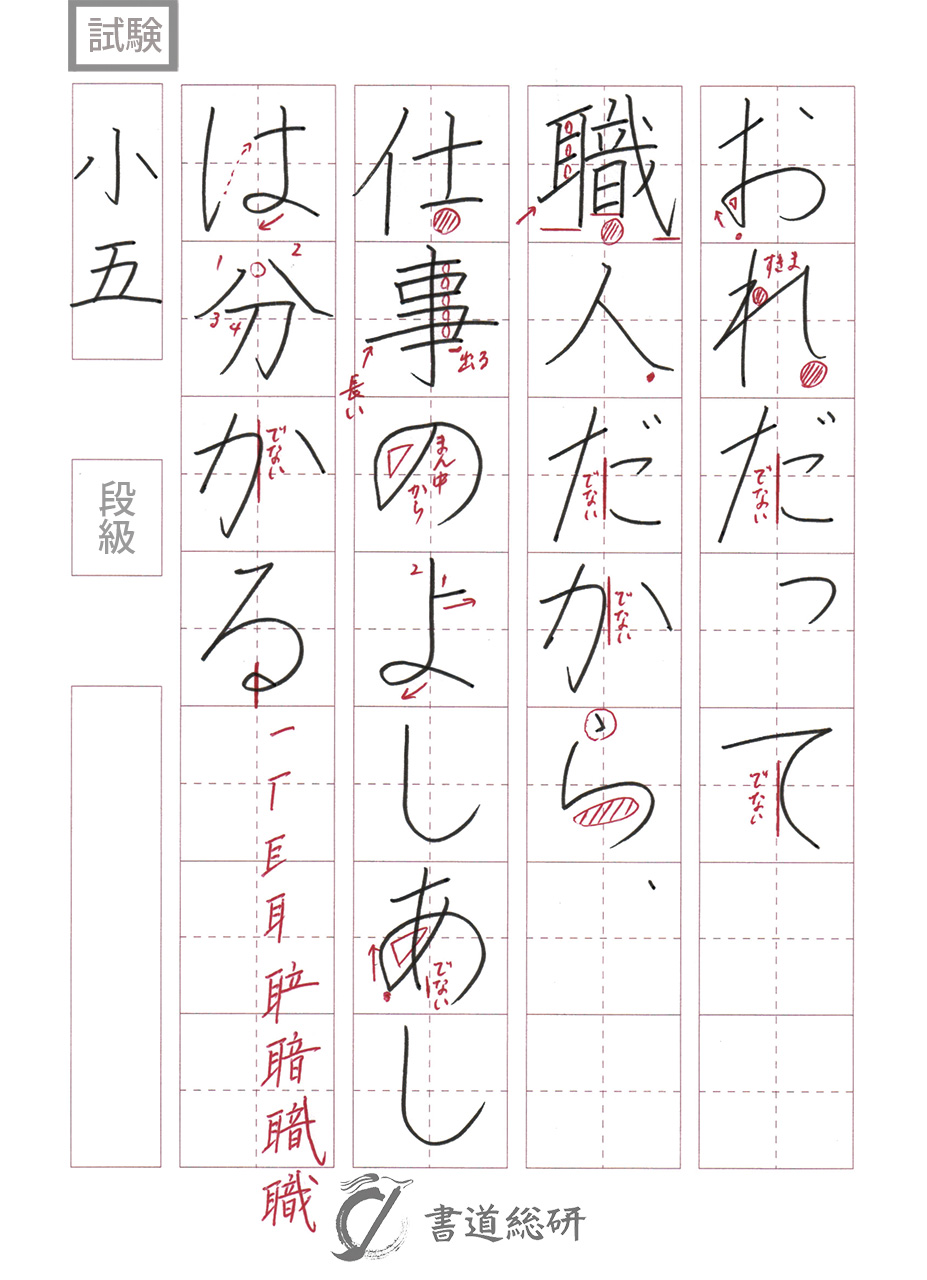 試験
おれだって
すきま
でない
でない
職人だから、
でない
でない
仕事のよしあし
出る
長い
まん中から
2
1
でない
は分がる
1
2
3
4
でない
一
丅
耳
職
職
小五
段級
書道総研